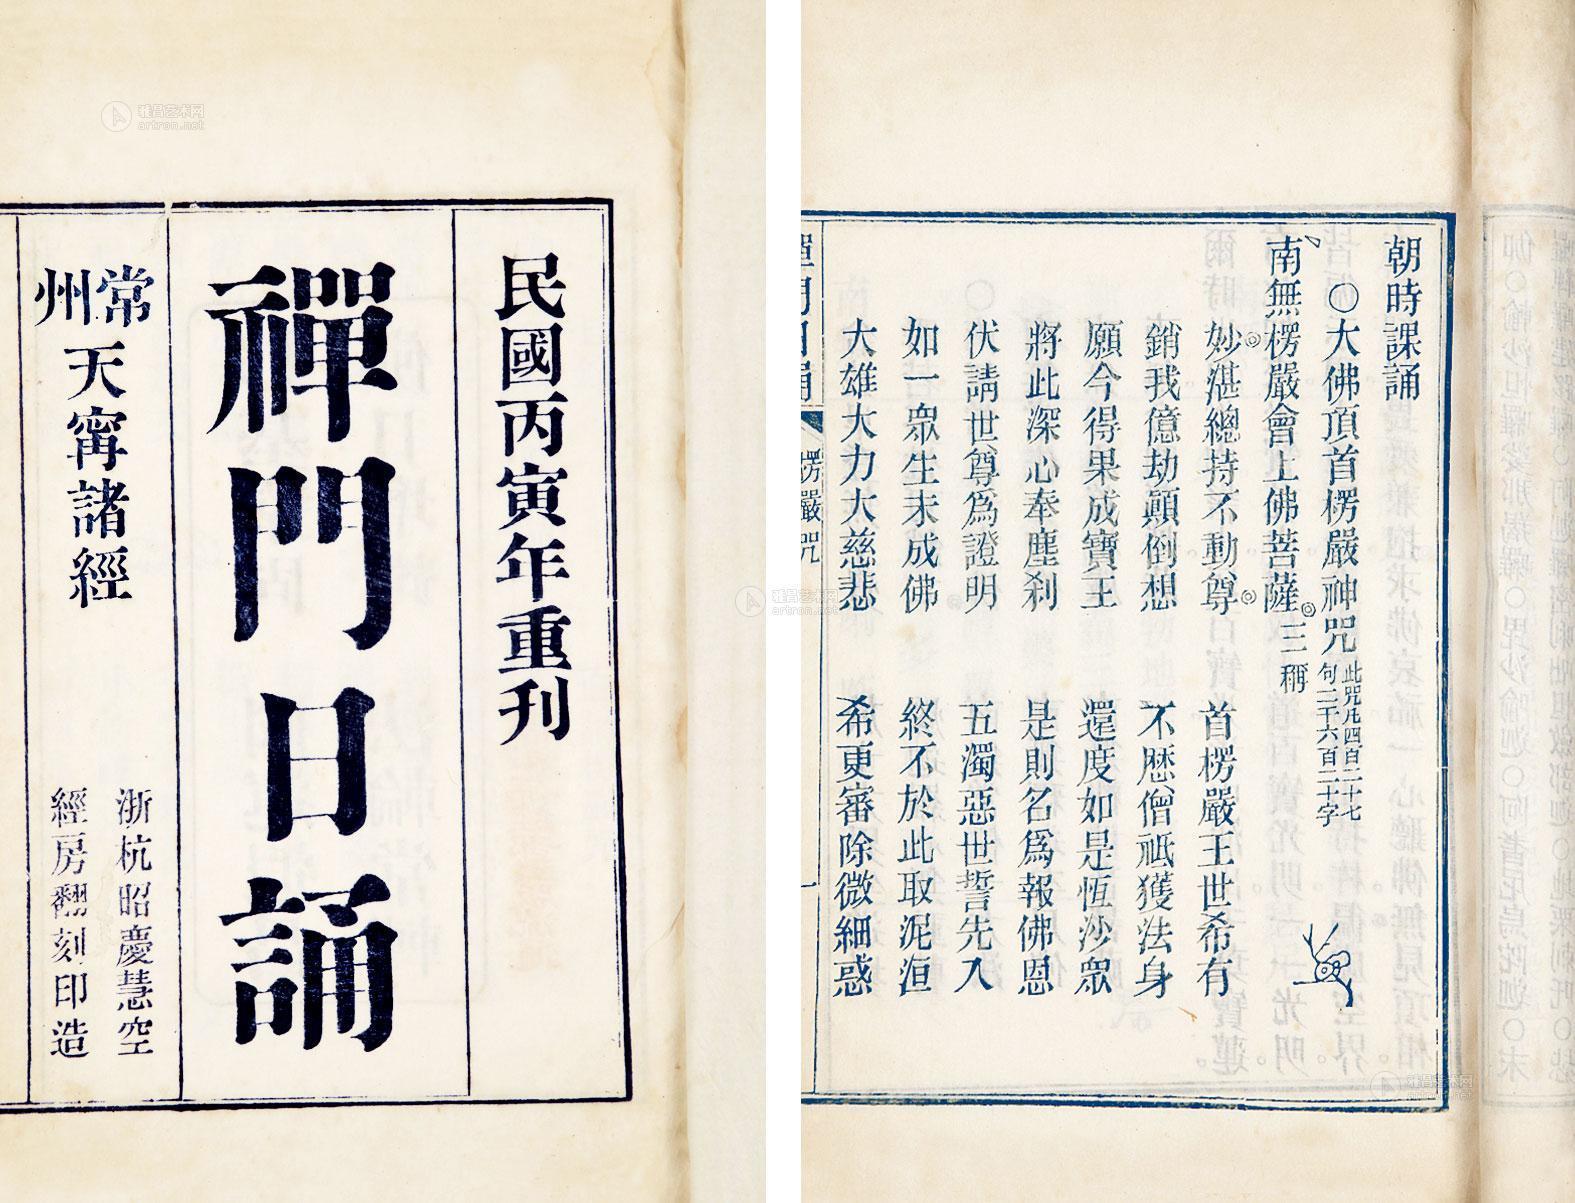 民國丙寅年重刊
禪門日誦
常州天甯諸經
浙杭昭慶慧空
經房翻刻印造
朝時課誦
○大佛頂首楞嚴神咒 此咒凡四百二十七句二千六百二十字
南無楞嚴會上佛菩薩 三稱
妙湛總持不動尊 首楞嚴王世希有
銷我億劫顛倒想 不歷僧祇獲法身
願今得果成寶王 還度如是恆沙眾
將此深心奉塵剎 是則名為報佛恩
伏請世尊為證明 五濁惡世誓先入
如一眾生未成佛 終不於此取泥洹
大雄大力大慈悲 希更審除微細惑
禪門日誦 楞嚴咒 一
雅昌艺术网
artron.net
雅昌艺术网
artron.net
雅昌艺术网
artron.net